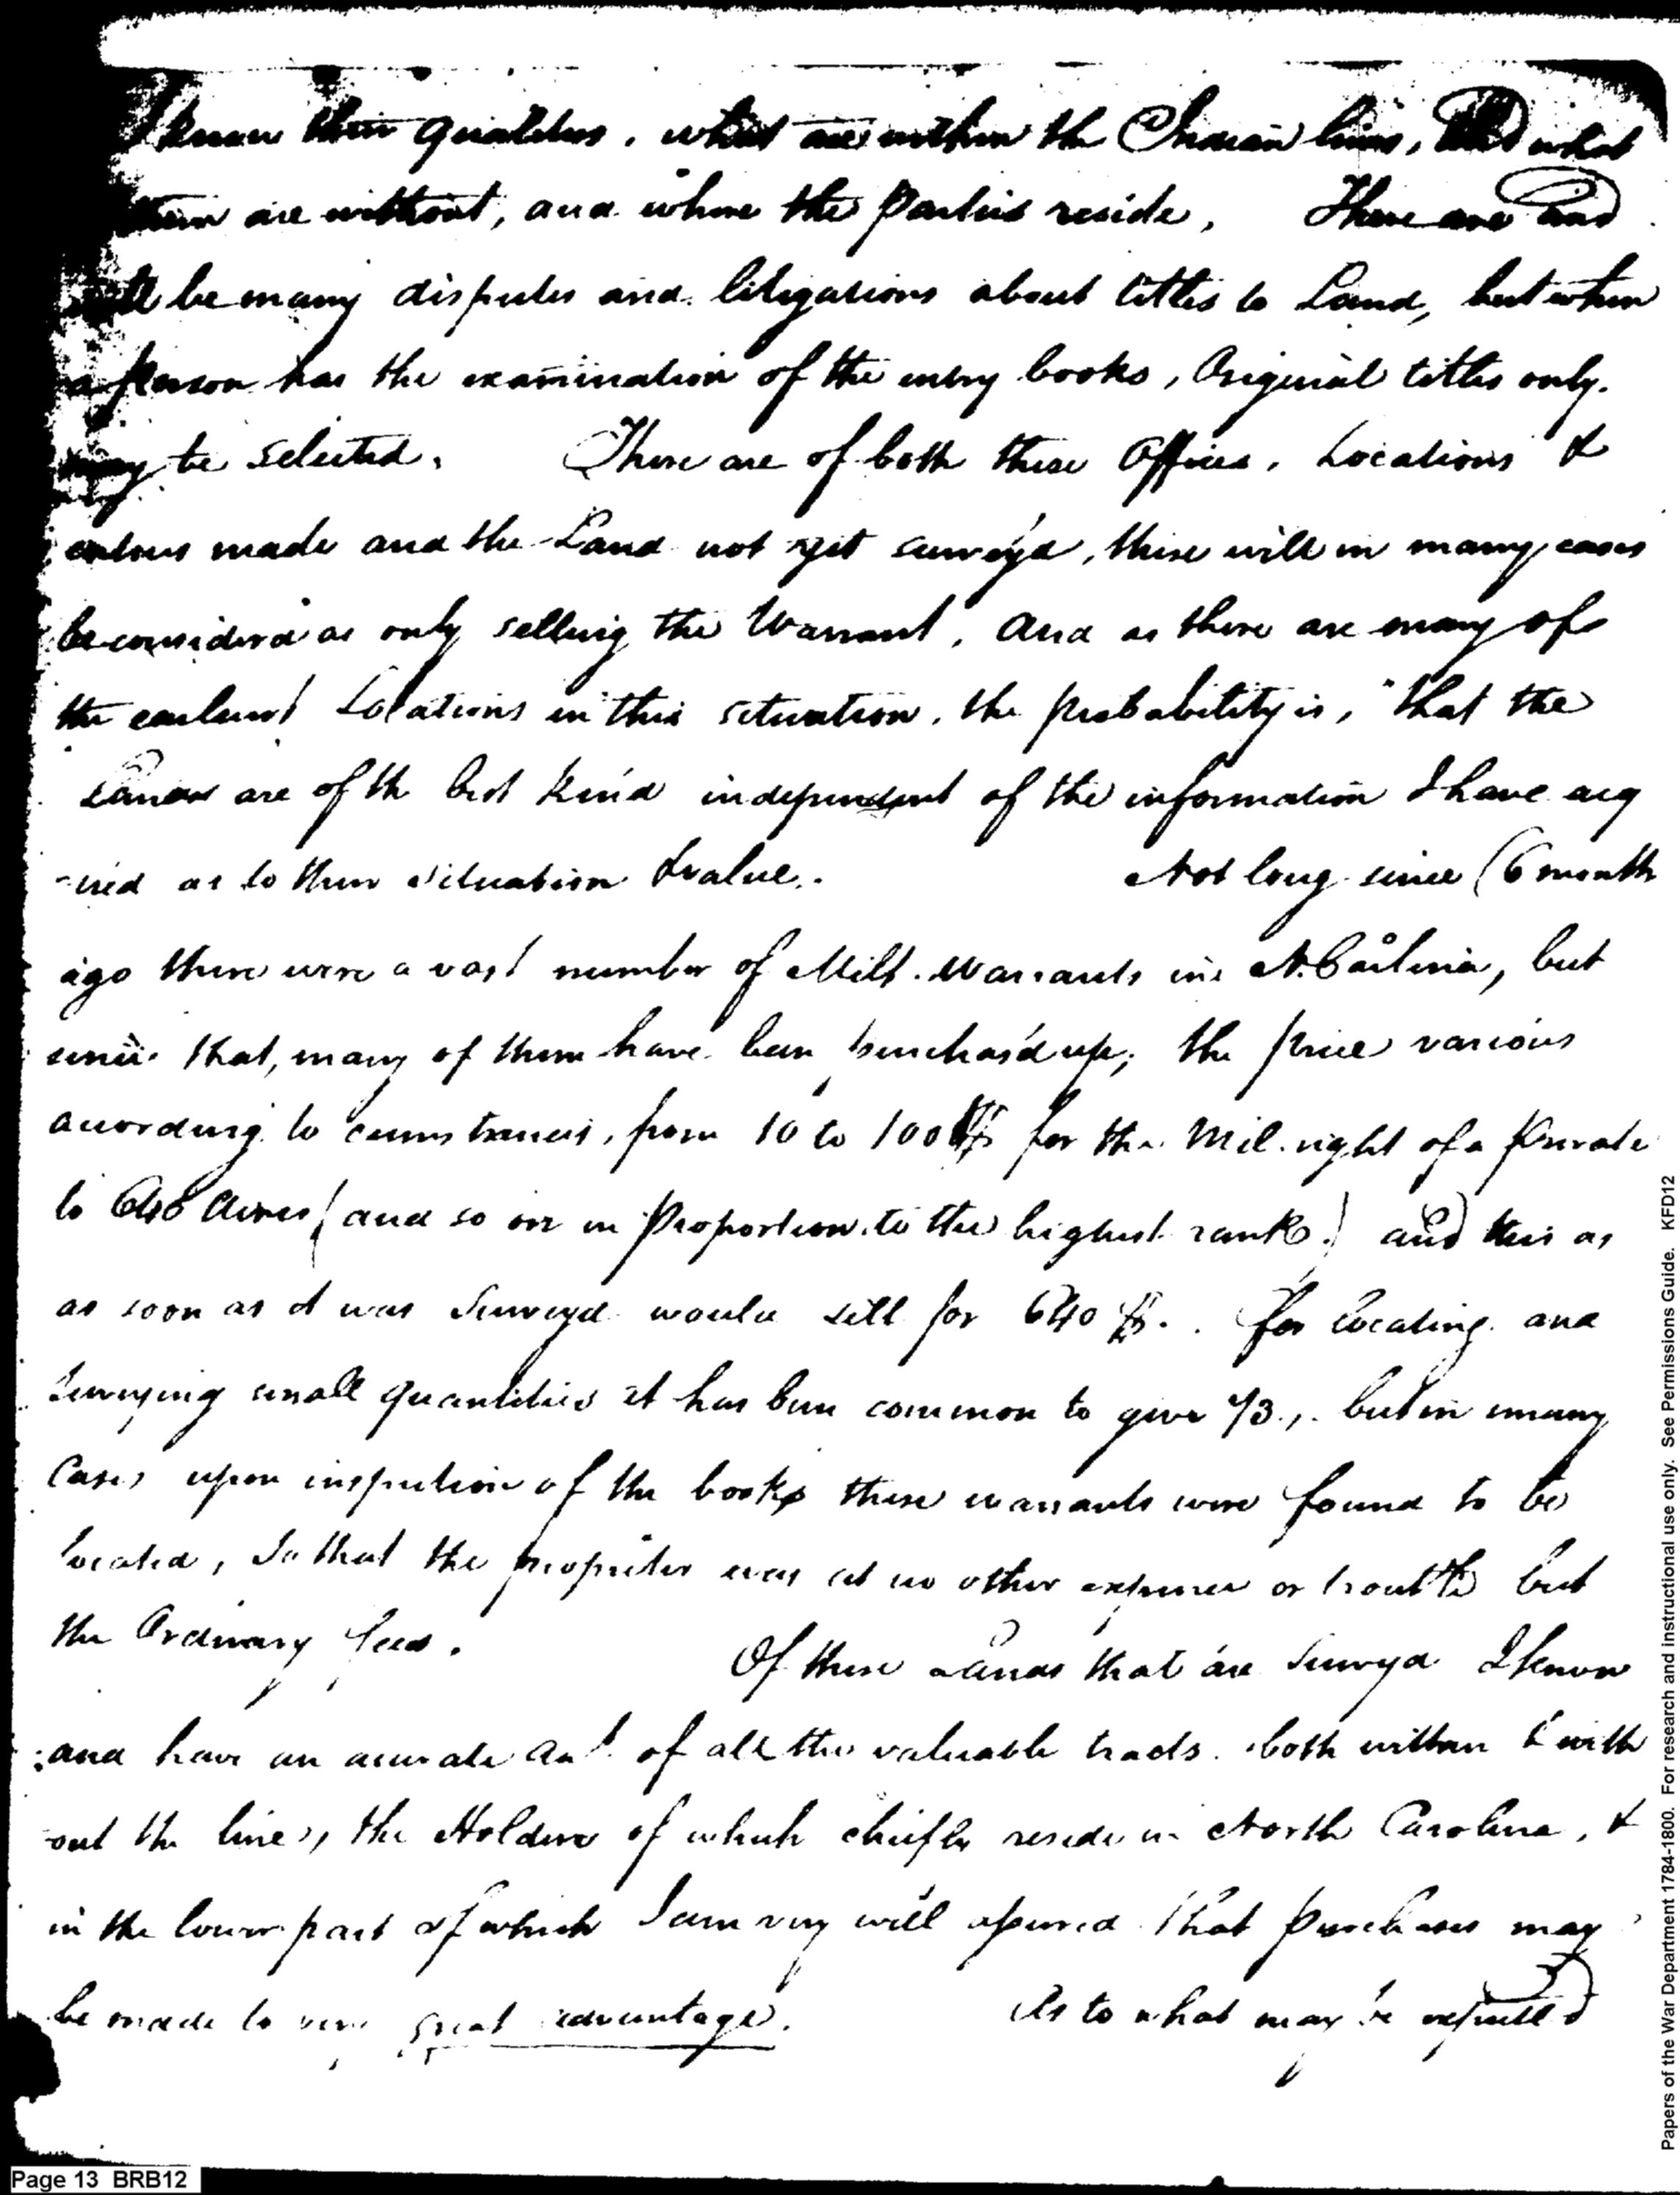 I know their qualities, what are within the Indian lines, and what
them are without, and where the Parties reside, There are and
will be many disputes and litigations about titles to Land, but when
a person has the examination of the entry books, Original titles only
may be selected. There are of both these Offices, Locations &
entries made and the Land not yet survey'd, these will in many cases
be considerd as only selling the Warrant, and as there are many of
the earliest Locations in this situation, the probability is, that the
Lands are of the best kind independent of the information I have acq
-uired as to their situation & value. Not long since (6 month
ago there were a vast number of Milt. Warrants in N. Carlina, but
since that, many of them have been purchas'd up; the price various
according to cumstances, from 10 to 100 for the Mil. right of a Private
to 640 Acres (and so on in Proportion to the highest rank.) and this as
as soon as it was Surveyd would sell for 640 . For locating and
surveying small quantities it has been common to give 1/3., but in many
Cases upon inspection of the books these warrants were found to be
located, so that the proprietor was at no other expence or trouble but
the Ordinary fees. Of these Lands that are Surveyd I know
and have an accurate act. of all the valuable tracts both within & with
out the lines, the Holders of which chiefly reside in North Carolina, &
in the lower part of which I am very well assured that purchases may
be made to very great advantage. As to what may be expected
Page 13 BRB12
Papers of the War Department 1784-1800. For research and instructional use only. See Permissions Guide. KFD12